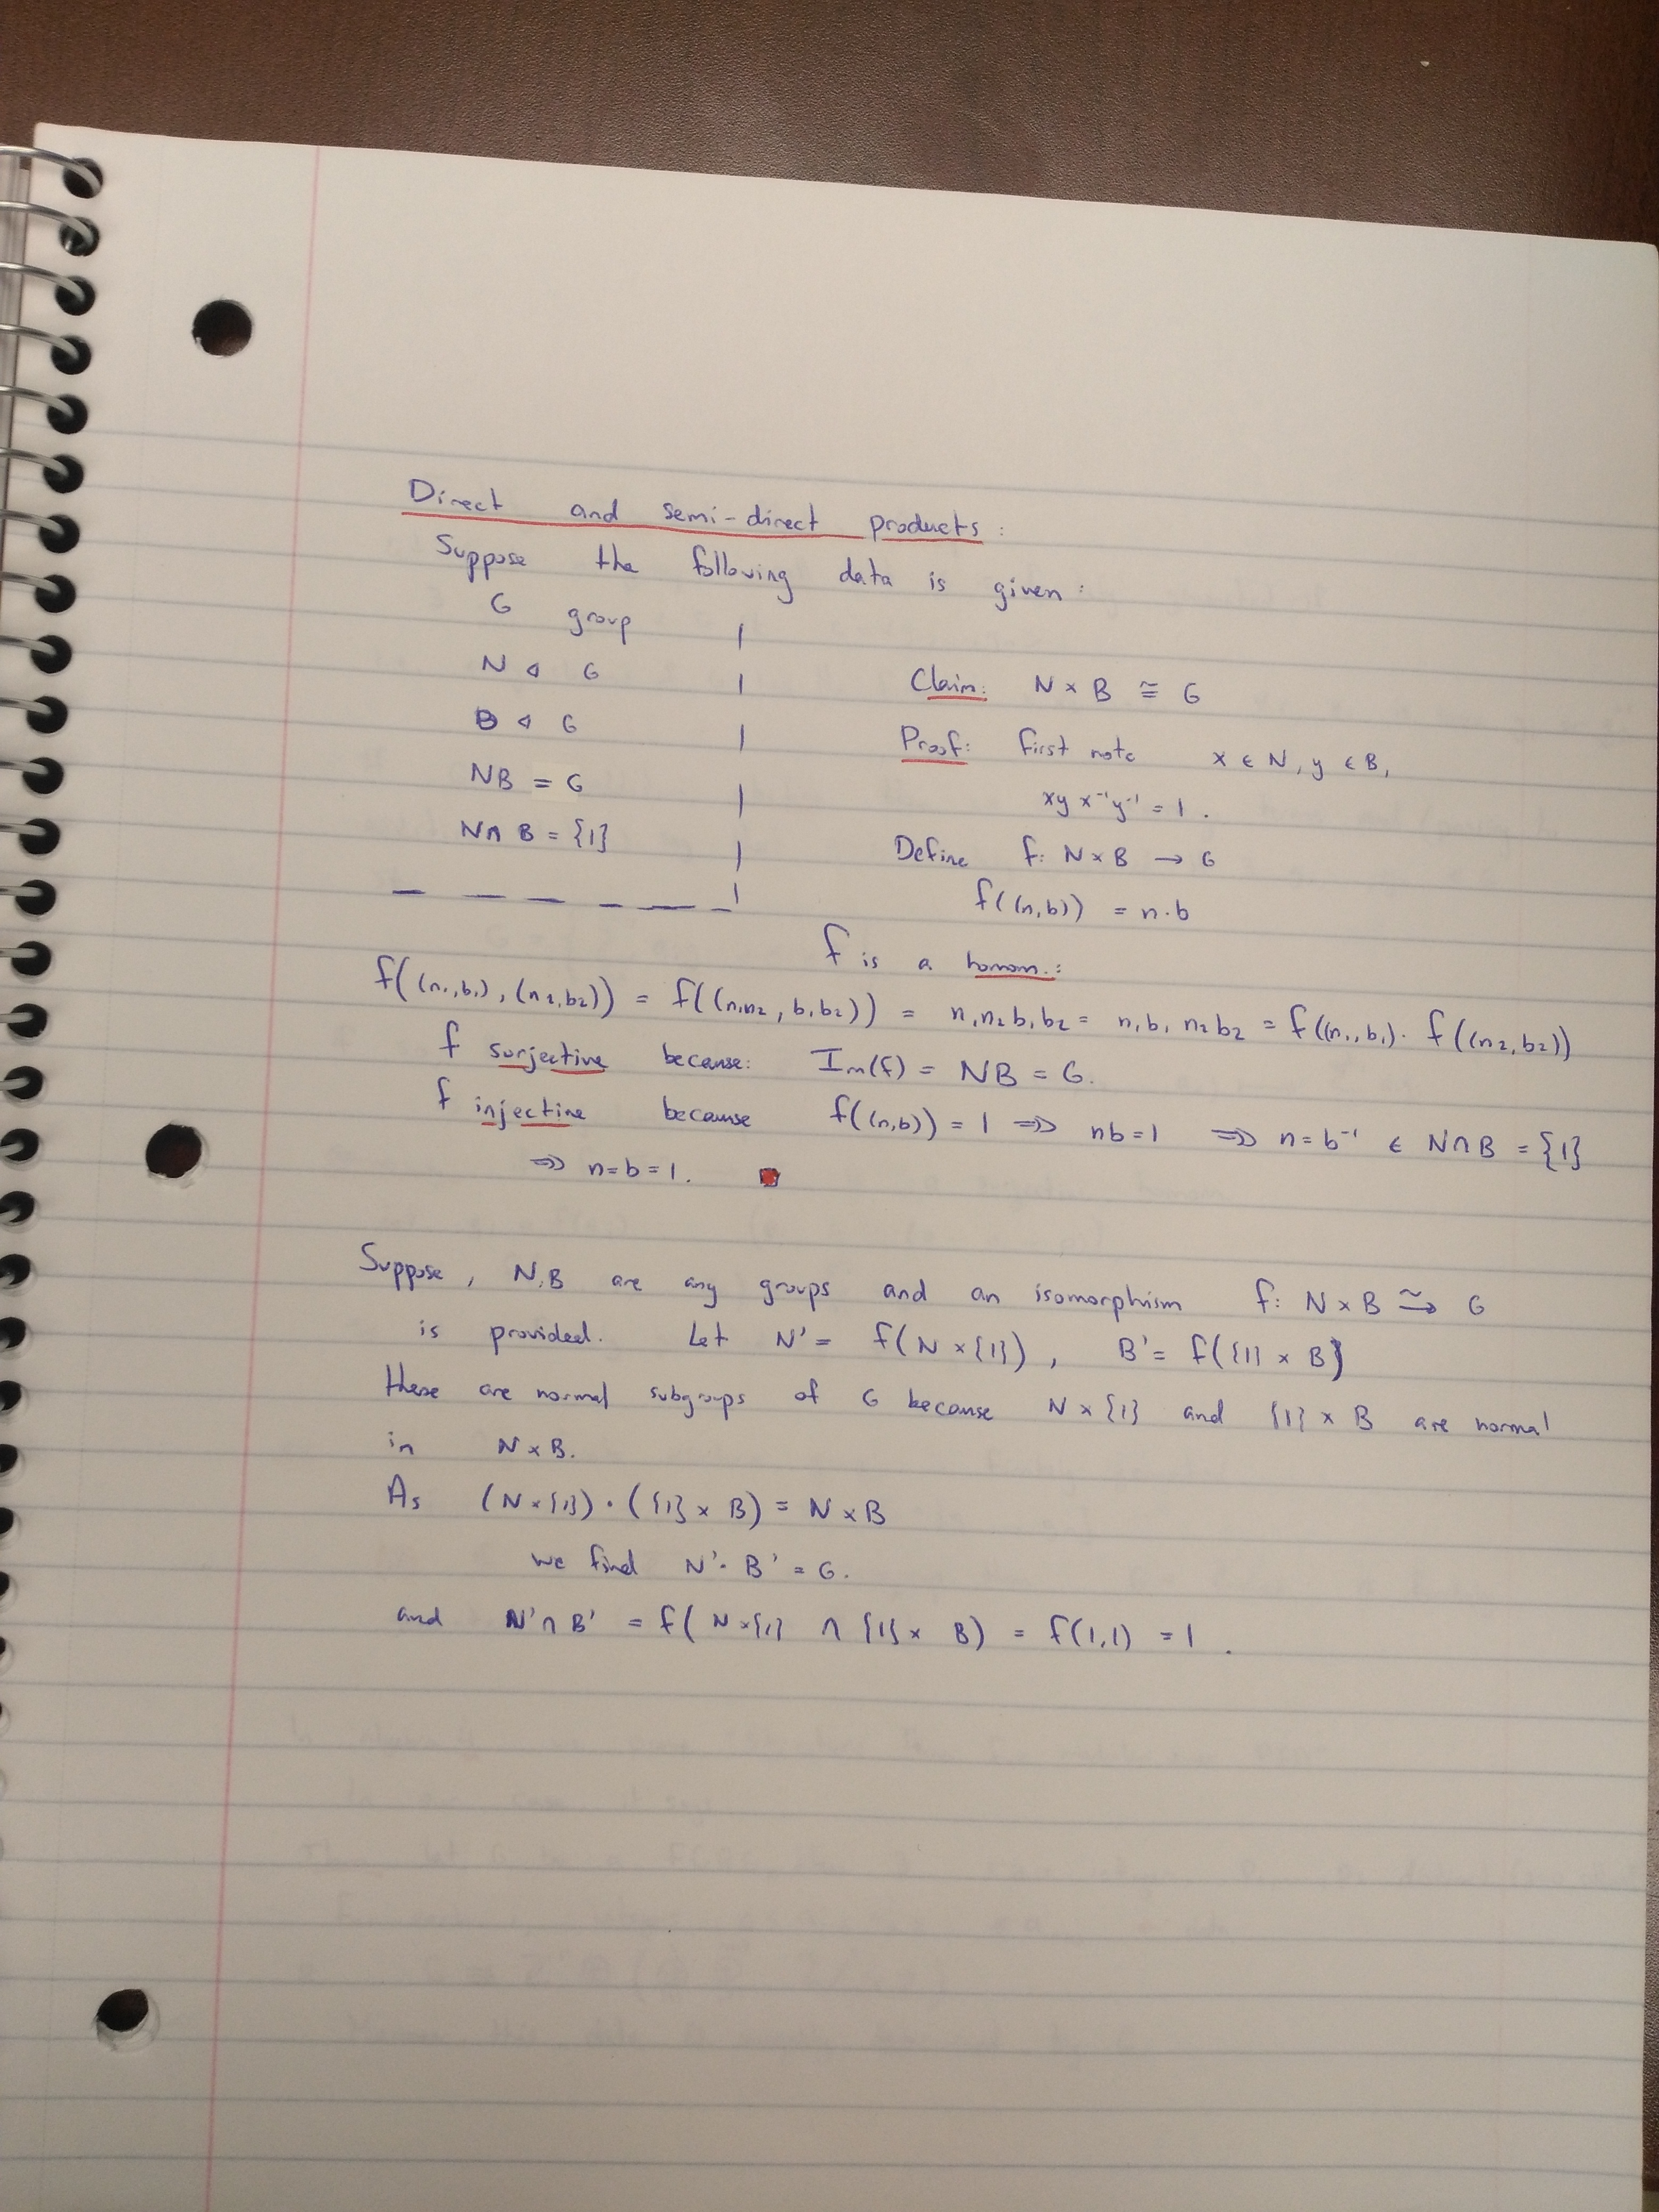 Direct and semi-direct products:
Suppose the following data is given:
G group
N ◁ G
B ◁ G
NB = G
N ∩ B = {1}
Claim: N × B ≅ G
Proof: First note x ∈ N, y ∈ B,
xyx⁻¹y⁻¹ = 1.
Define f: N × B → G
f((n,b)) = n·b
f is a homom.:
f((n₁,b₁), (n₂,b₂)) = f((n₁n₂, b₁b₂)) = n₁n₂b₁b₂ = n₁b₁n₂b₂ = f((n₁,b₁)· f((n₂,b₂))
f surjective because: Im(f) = NB = G.
f injective because f((n,b)) = 1 ⇒ nb = 1 ⇒ n = b⁻¹ ∈ N∩B = {1}
⇒ n=b=1.
Suppose, N,B are any groups and an isomorphism f: N × B ⥲ G
is provided. Let N' = f(N × {1}), B' = f({1} × B)
these are normal subgroups of G because N × {1} and {1} × B are normal
in N × B.
As (N × {1}) · ({1} × B) = N × B
we find N'· B' = G.
and N' ∩ B' = f( N × {1} ∩ {1} × B) = f(1,1) = 1.